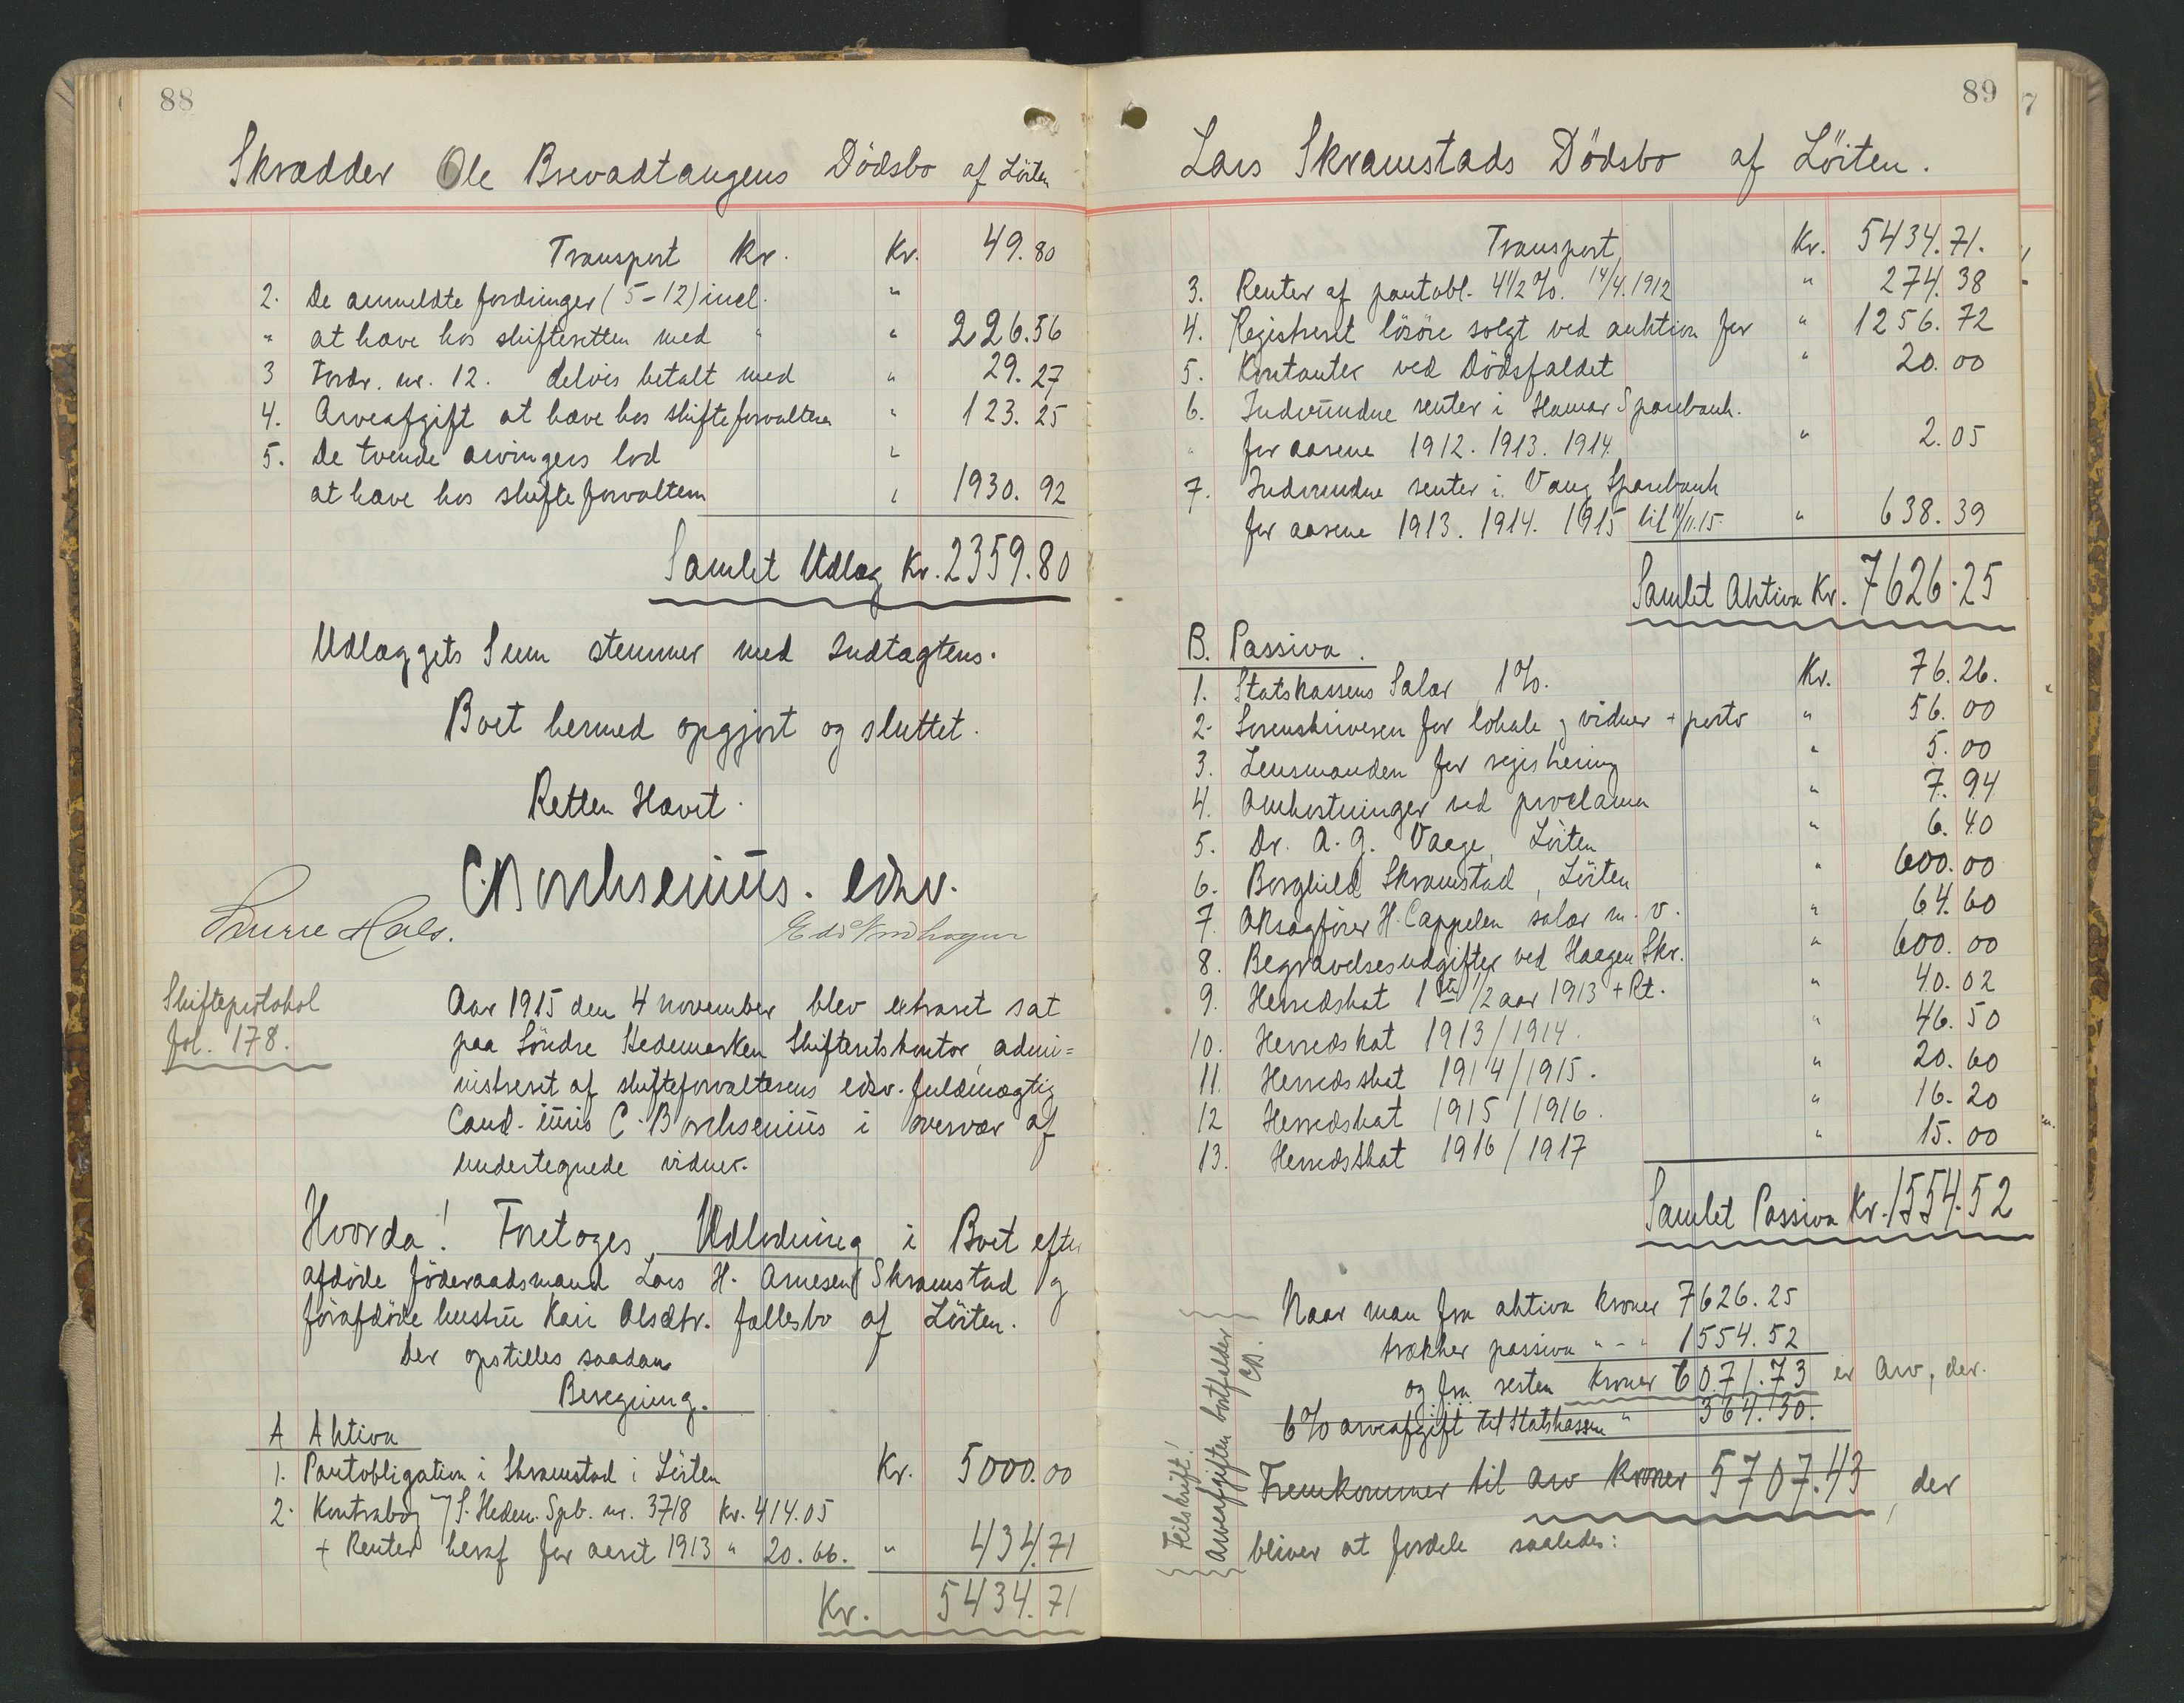 88
Skrædder Ole Brevadtangens Dödsbo af Löiten
Transport Kr. Kr. 49.80
2. De anmeldte fordringer (5-12) incl. "
" at hæve hos skifteretten med " " 226.56
3 Fordr. nr. 12. delvis betalt med " 29.27
4. Arveafgift at hæve hos skifteforvalteren " 123.25
5. De tvende arvingers lod "
at hæve hos skifteforvalteren " 1930.92
Samlet Udlæg Kr. 2359.80
Udlæggets Sum stemmer med Indtægtens.
Boet hermed opgjort og sluttet.
Retten Hævet.
C. Borchsenius. edsv.
Skifteprotokol
fol. 178.
Aar 1915 den 4 november blev extraret sat
paa Söndre Hedemarken Skifteretskontor, admi=
nistreret af skifteforvalterens edsv. fuldmægtig
Cand. iuris C. Borchsenius i overvær af
undertegnede vidner.
Hvorda! Foretoges Udlodning i Boet efter
afdöde föderaadsmand Lars H. Arnesen Skramstad og
förafdöde hustru Kari Olsdtr. fællesbo af Löiten.
Der opstilles saadan
Beregning.
A Aktiva
1. Pantobligation i Skramstad i Löiten Kr. 5000.00
2. Kontrabog 7 S. Hedem. Spb. nr. 3718 Kr. 414.05
+ Renter heraf for aaret 1913 " 20.66. " 434.71
Kr. 5434.71
89
Lars Skramstads Dödsbo af Löiten.
Transport Kr. 5434.71.
3. Renter af pantobl. 4 1/2 %. 14/4.1912 " 274.38
4. Registreret lösöre solgt ved auktion for " 1256.72
5. Kontanter ved Dödsfaldet " 20.00
6. Indvundne renter i Hamar Sparebank.
" for aarene 1912. 1913. 1914. " 2.05
7. Indvundne renter i Vang Sparebank
for aarene 1913. 1914. 1915 til 11/11.15. " 638.39
Samlet Aktiva Kr. 7626.25
B. Passiva.
1. Statskassens Salær 1%. Kr. 76.26.
2. Sorenskriveren for lokale og vidner + porto " 56.00
3. Lensmanden for registrering " 5.00
4. Omkostninger ved proclama " 7.94
5. Dr. A. G. Vaage, Löiten " 6.40
6. Borghild Skramstad, Löiten " 600.00
7. ORsagförer H. Cappelen salær m. v. " 64.60
8. Begravelsesudgifter ved Haagen Skr. " 600.00
9. Herredskat 1ste 1/2 aar 1913 + Rt. " 40.02
10. Herredskat 1913/1914. " 46.50
11. Herredsskat 1914/1915. " 20.60
12 Herredskat 1915/1916. " 16.20
13. Herredsskat 1916/1917 " 15.00
Samlet Passiva Kr. 1554.52
Naar man fra aktiva kroner 7626.25
trækker passiva " - " 1554.52
og fra resten kroner 6071.73 er Arv, der.
6% arveafgift til Statskassen " 364.30.
Fremkommer til arv kroner 5707.43, der
bliver at fordele saaledes:
Feilskrift!
Arveafgiften bortfalder
CB.